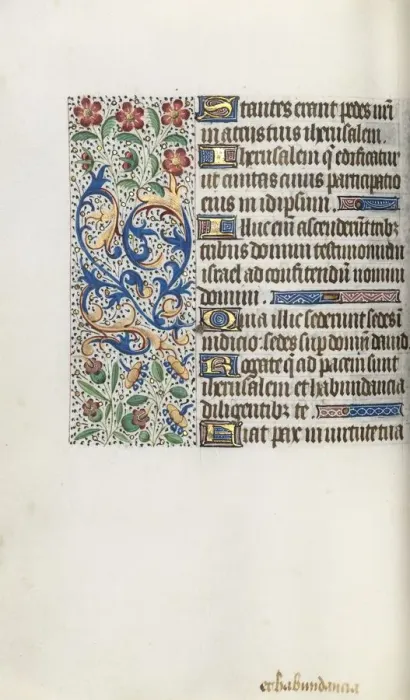 Stantes erant pedes nr̄i
in atriis tuis iherusalem.
Iherusalem q̄ edificatur
ut ciuitas cuius participatio
eius in idipsum.
Illuc em̄ ascenderūt tribꝫ
tribus domini testimonium
israel ad confitendū nomini
domini.
Quia illuc sederunt sedes ī
iudicio: sedes sup domū dauid.
Rogate q̄ ad pacem sunt
iherusalem et habundancia
diligentibꝫ te.
Fiat pax in uirtute tua
et habundancia